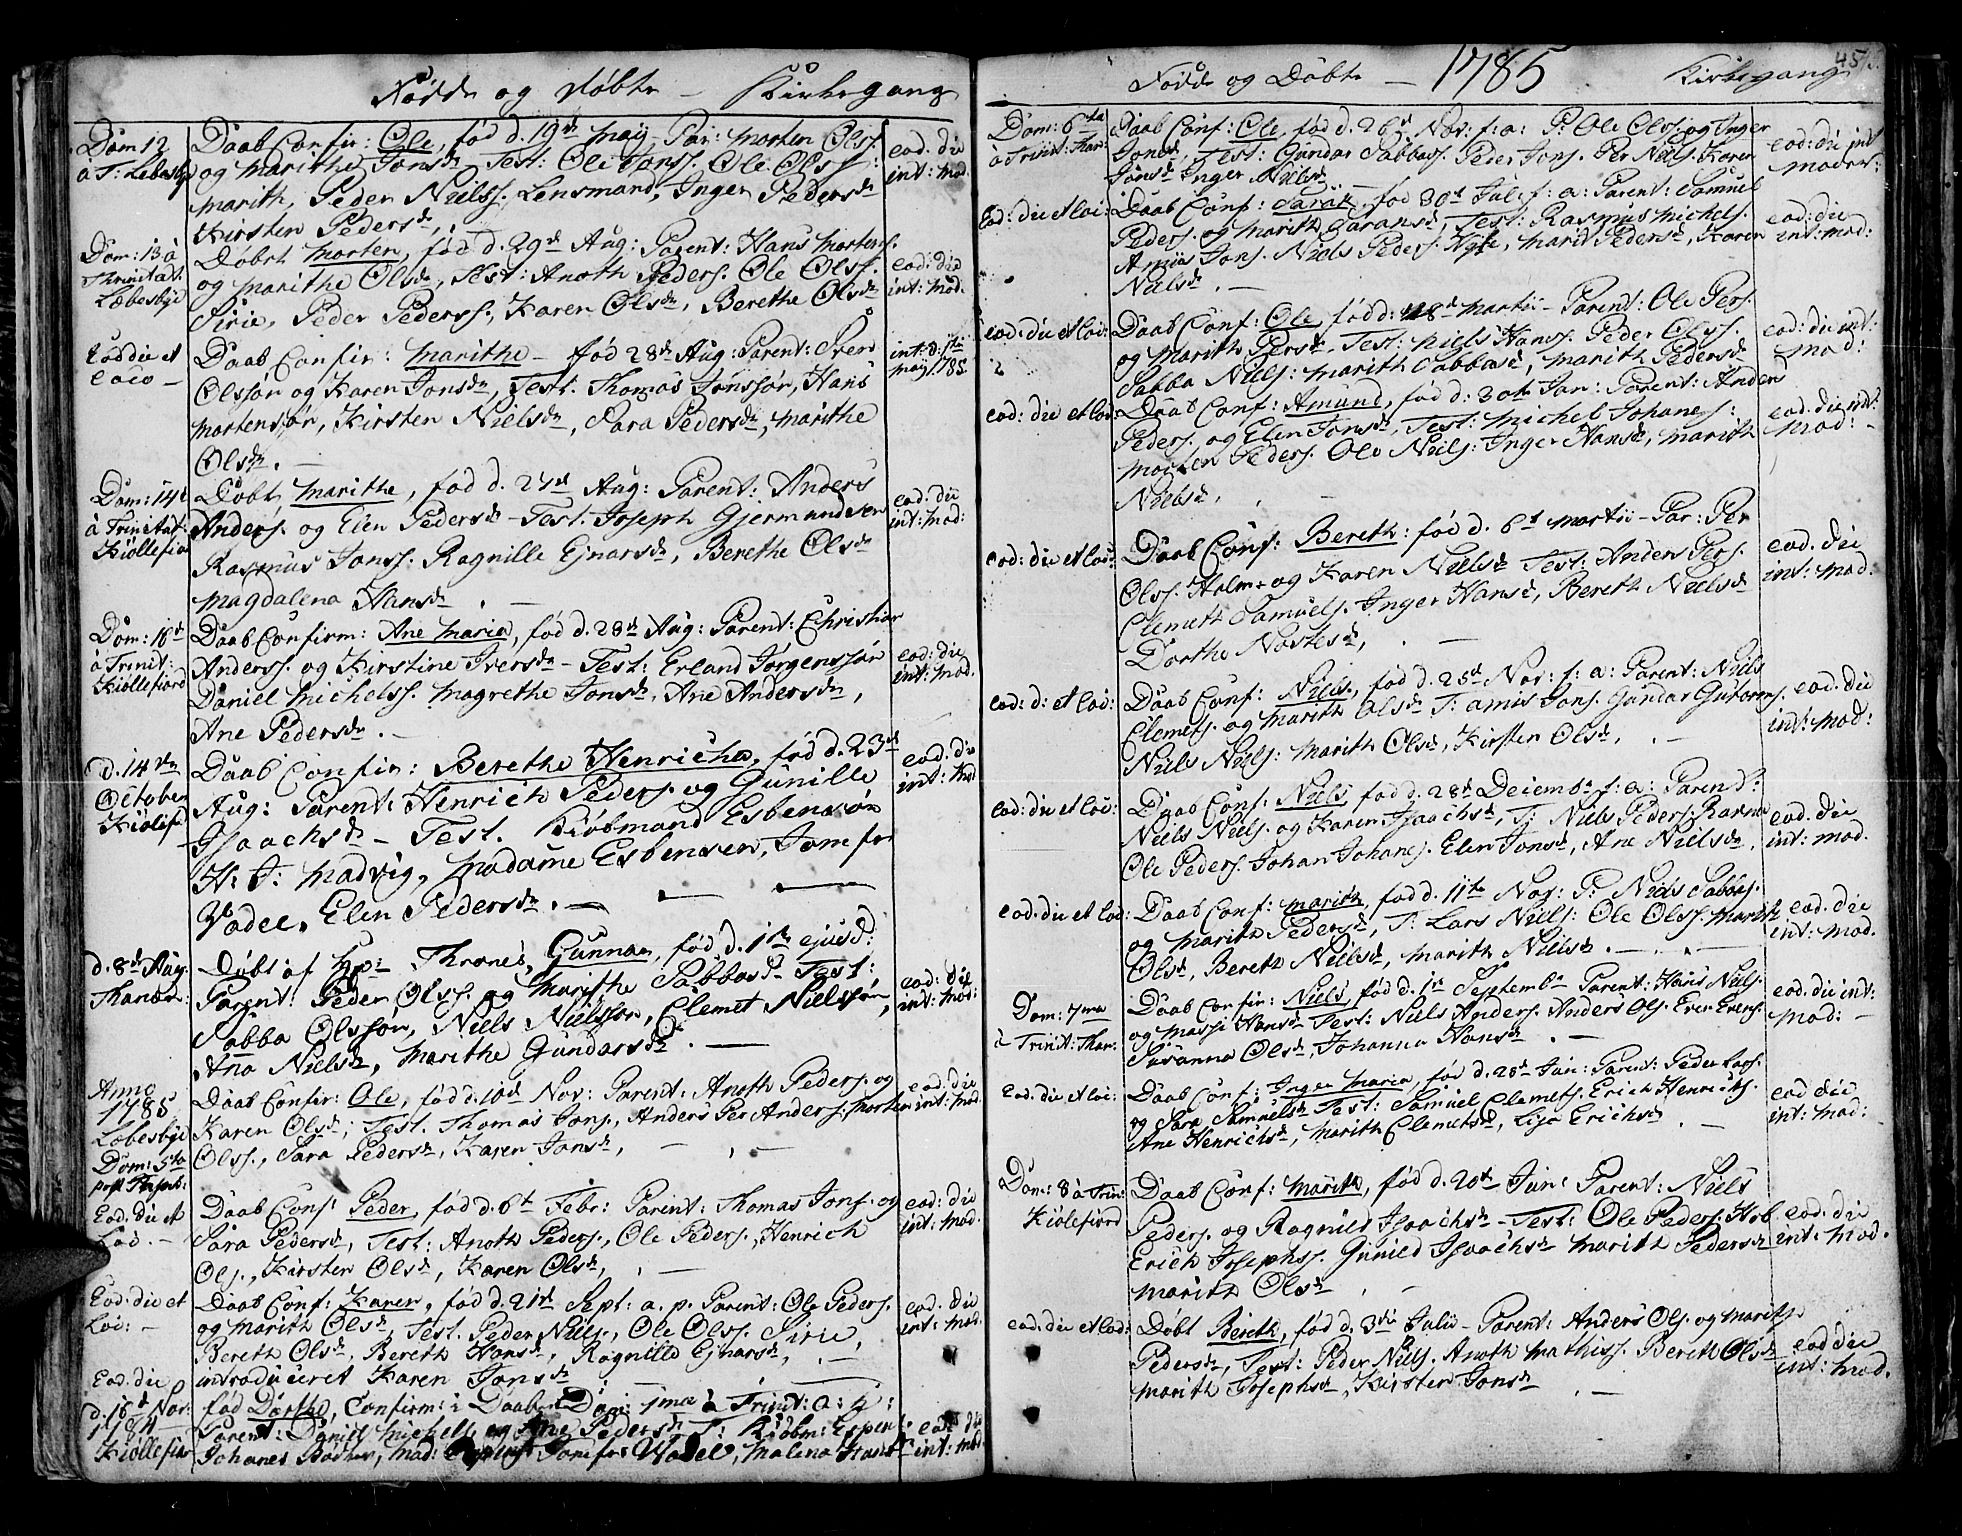 Fødde og døbte — Kirkegang
Dom 12
à T: Lebesby
Daab Confir: Ole, fød d. 19de may, Par: Morten Olss.
og Marithe Jonsdr Test: Ole Jonss. Ole Olss:
Marith, Peder Nielss. Lensmand, Inger Pedersdr
Kirsten Pedersdr, —
eod. die
int: mod.
Dom: 13 à
Thrinitat.
Læbesbye
Døbt Morten, fød d. 29de Aug: Parent: Hans Mortens.
og Marithe Olsdr, Test: Anoth Peders. Ole Olss.
Sirie, Peder Pederss, Karen Olsdr, Berethe Olsdr
eod: die
int: mod.
Eod die et
loco —
Daab Confir: Marithe — fød 28de Aug: Parent: Iver
Olssøn og Karen Jonsdr, Test: Thomas Jonssøn, Hans
Mortensøn, Kirsten Nielsdr, Sara Pedersdr, Marithe
Olsdr. —
int: d. 1te
may 1785
Dom: 14de
à Trinitat:
Kiøllefiord
Døbt Marithe, fød d. 27de Aug: Parent: Anders
Anders. og Elen Pedersdr — Test. Joseph Gjermundsen
Rasmus Jonss. Ragnille Ejnarsdr, Berethe Olsdr
Magdalena Hansdr. —
eod. die
int: mod:
Dom: 18de
à Trinit:
Kiøllefiord
Daab Confirm: Ane Maria, fød d. 28de Aug: Parent: Christian
Anderss. og Kirstine Iversdr — Test: Erland Jørgenssøn
Daniel Michelss. Magrethe Jonsdr. Ane Andersdr,
Ane Pedersdr. —
eod: die
int: mod.
d. 14den
October
Kiølefiord
Daab Confir: Berethe Henricha, fød d. 23de
Aug: Parent: Henrich Peders. og Gunille
Isaachsdr — Test. Kiøbmand Esbensøn
H: J: Madvig, Madame Esbensen, Jomfr
Vadel, Elen Pedersdr. —
eod. die
int: mod
d. 8de Aug.
Thanen.
Døbt af Hr: Thrones, Gunnar, fød d. 1te ejusd:
Parent: Peder Olss. og Marithe Sabbasdr Test:
Sabba Olssøn, Niels Nielssøn, Clemet Nielssøn,
Ana Nielsdr, Marithe Gundarsdr. —
eod. die
int: mod:
Anno
1785
Læbesbye
Dom: 5ta
post
Daab Confir: Ole, fød d. 10de Nov: Parent: Anoth Peders. og
Karen Olsdr; Test. Thomas Jons, Anders Per Anders, Morten
Olss., Sara Pedersdr, Karen Jonsdr, —
eod. die
int: mod.
Eod. die et
Lod. —
Daab Conf: Peder, fød d. 6t Febr: Parent: Thomas Jons. og
Sara Pedersdr, Test: Anoth Peders, Ole Peders., Henrich
Ols., Kirsten Olsdr, Karen Olsdr, —
eod: die
int: mod.
Eod. die et
Loi: —
Daab Conf: Karen, fød d. 21de Sept: a. p. Parent: Ole Peders.
og Marith Olsdr, Test. Peder Niels, Ole Olss. Sirie,
Bereth Olsdr, Bereth Hansdr, Ragnille Ejnarsdr, —
eod. die
int: mod
Eod. die
introduceret Karen Jonsdr. —
d. 16de Nov:
1784
Kiøllefior
fød Dorthe, Confirm: i Daaben Dom: 1ma à Trinit: a: p:
Parent: Daniel Michels og Ane Pedersdr T: Kiøbm: Espens.
Johanes Bødker, Mad: Jomfr Wadel, Malena Hansdr
eod die
int: mod.
Fødde og Døbte — 1785 Kirkegang 45
Dom: 6ta
à Trinit: Than:
Daab Conf: Ole, fød d. 26de Nov: f: a: P: Ole Olss. og Inger
Jonsdr, Test: Gundar Sabbass. Peder Jons. Per Niels. Karen
Jonsdr Inger Nielsdr
eod: die int
moder
Eod: die et loi:
Daab Conf: Sarak, fød 30de Juli f: a: Parent: Samuel
Peders. og Marith Garansdr, Test: Rasmus Michels.
Amus Jons. Niels Peders. Nyke, Marit Pedersdr, Karen
Nielsdr. —
eod: die
int: mod:
eod: die et loi:
Daab Conf: Ole, fød d: 18de Martii — Parent: Ole Pers.
og Marith Persdr, Test: Niels Hanss. Peder Olss.
Sabba Niels: Marith Sabbasdr, Marith Pedersdr
eod: die int:
mod:
eod: die et loi:
Daab Conf: Amund, fød d: 30te Jan: Parent: Anders
Peders. og Elen Jonsdr, Test: Michel Johanes:
Morten Peders. Ole Niels: Inger Hansdr, Marith
Nielsdr, —
eod. die int:
mod: —
eod: die et loi:
Daab Conf: Bereth: fød d. 6t Martii — Par: Per
Olss. Holm og Karen Nielsdr Test: Anders Pers.
Clemet Samuels. Inger Hansdr, Bereth Nielsdr
Dorthe Nostesdr, —
eod. die
int: mod.
eod: d: et loi:
Daab Conf: Niels, fød d. 25de Nov: f: a: Parent: Niels
Clemets. og Marith Olsdr T: Amus Jons. Gundar Gutorms.
Niels Niels: Marith Olsdr, Kirsten Olsdr, —
eod. die
int: mod:
eod: die et loi:
Daab Conf: Niels fød d. 28de Decembr f: a: Parent:
Niels Niels. og Karen Isaachsdr, T: Niels Peders: Ravna
Ole Peders. Johan Johans. Elen Jonsdr, Ane Nielsdr.
eod. die
int: mod.
eod. die et Lod:
Daab Conf: Marith, fød d. 11te Nov: P: Niels Sabbas.
og Marith Pedersdr, T: Lars Niels: Ole Olss. Marith
Olsdr, Bereth Nielsdr, Marith Nielsdr. —
eod. die
int: mod.
Dom: 7ma
à Trinit: Than:
Daab Confir: Niels, fød d. 1te Septembr Parent: Hans Niels.
og Massi Hansdr Test: Niels Anders. Anders Ols. Even Evens.
Susanna Olsdr, Johanna Hansdr. —
eod. die int:
mod: —
Eod. die et loi:
Daab Conf: Inger Maria, fød d. 28de Jan: Parent: Peder Lars.
og Sara Samuelsdr Test: Samuel Clemets. Erich Henrichs.
Ane Henrichsdr, Marith Clemetsdr, Lisa Erichsdr. —
eod die
int: mod:
Dom: 8 à Trin:
Kiølefiord
Daab Conf: Marith, fød d. 20de Jun: Parent: Niels
Peders. og Ragnild Isaachsdr — Test: Ole Peders. Hob
Erich Josephss. Gunild Isaachsdr Marith Pedersdr
Marith Olsdr. —
eod. die
int: mod.
eod. die et Lod:
Døbt Bereth, fød d. 3die Julii — Parent: Anders Ols. og Marith
Pedersdr, Test: Peder Niels. Anoth Mathiss. Bereth Olsdr
Marith Josephsdr, Kirsten Jonsdr. —
eod die
int: mod.